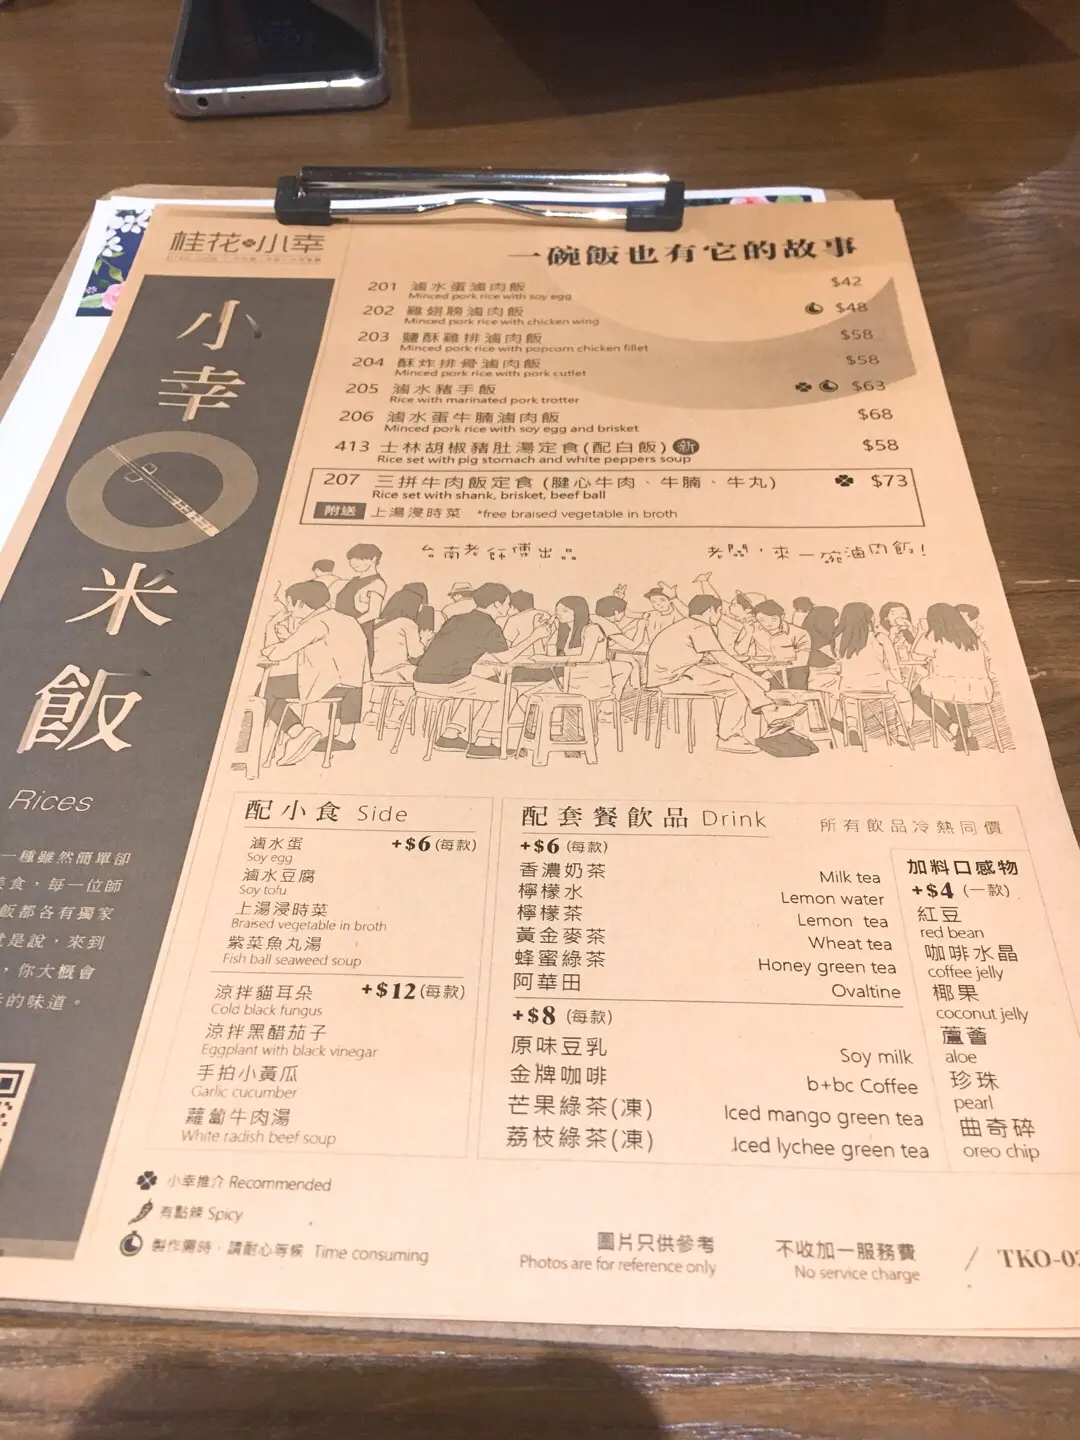 桂花小幸
一碗飯也有它的故事
小幸米飯
Rices
一種雖然簡單卻
美食，每一位師
飯都各有獨家
就是說，來到
，你大概會
的味道。
201 滷水蛋滷肉飯 $42
Minced pork rice with soy egg
202 雞翅膀滷肉飯 $48
Minced pork rice with chicken wing
203 鹽酥雞排滷肉飯 $58
Minced pork rice with popcorn chicken fillet
204 酥炸排骨滷肉飯 $58
Minced pork rice with pork cutlet
205 滷水豬手飯 $63
Rice with marinated pork trotter
206 滷水蛋牛腩滷肉飯 $68
Minced pork rice with soy egg and brisket
413 士林胡椒豬肚湯定食(配白飯) 新 $58
Rice set with pig stomach and white peppers soup
207 三拼牛肉飯定食 (腱心牛肉、牛腩、牛丸) $73
Rice set with shank, brisket, beef ball
附送 上湯浸時菜 *free braised vegetable in broth
台南老師傅出品
老闆，來一碗滷肉飯！
配小食 Side
滷水蛋 +$6 (每款)
Soy egg
滷水豆腐
Soy tofu
上湯浸時菜
Braised vegetable in broth
紫菜魚丸湯
Fish ball seaweed soup
涼拌貓耳朵 +$12 (每款)
Cold black fungus
涼拌黑醋茄子
Eggplant with black vinegar
手拍小黃瓜
Garlic cucumber
蘿蔔牛肉湯
White radish beef soup
配套餐飲品 Drink
所有飲品冷熱同價
+$6 (每款)
香濃奶茶 Milk tea
檸檬水 Lemon water
檸檬茶 Lemon tea
黃金麥茶 Wheat tea
蜂蜜綠茶 Honey green tea
阿華田 Ovaltine
+$8 (每款)
原味豆乳 Soy milk
金牌咖啡 b+bc Coffee
芒果綠茶(凍) Iced mango green tea
荔枝綠茶(凍) Iced lychee green tea
加料口感物
+$4 (一款)
紅豆
red bean
咖啡水晶
coffee jelly
椰果
coconut jelly
蘆薈
aloe
珍珠
pearl
曲奇碎
oreo chip
小幸推介 Recommended
有點辣 Spicy
製作需時，請耐心等候 Time consuming
圖片只供參考
Photos are for reference only
不收加一服務費
No service charge
/ TKO-02